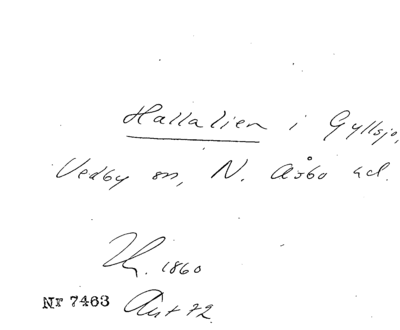 Hallalien i Gyllsjö,
Vedby sn, N. Åsbo hd.
1860
Nr 7463 Ant 72